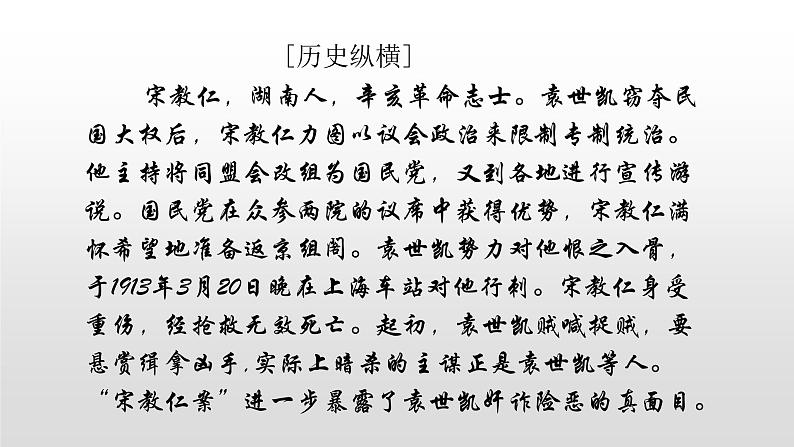 [历史纵横]
宋教仁，湖南人，辛亥革命志士。袁世凯窃夺民
国大权后，宋教仁力图以议会政治来限制专制统治。
他主持将同盟会改组为国民党，又到各地进行宣传游
说。国民党在众参两院的议席中获得优势，宋教仁满
怀希望地准备返京组阁。袁世凯势力对他恨之入骨，
于1913年3月20日晚在上海车站对他行刺。宋教仁身受
重伤，经抢救无效死亡。起初，袁世凯贼喊捉贼，要
悬赏缉拿凶手,实际上暗杀的主谋正是袁世凯等人。
“宋教仁案”进一步暴露了袁世凯奸诈险恶的真面目。